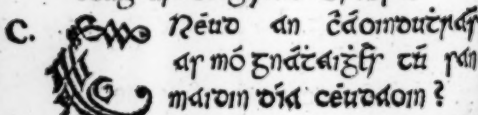 C. CRéud an ċáoinduṫraċt
as mó gnáṫaiġṫr tú san
maidin día céudaoin?